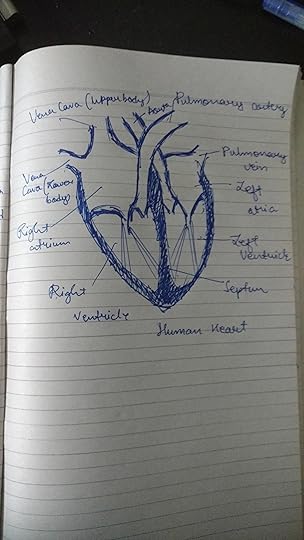 Vena Cava (Upper body)
Aorta
Pulmonary artery
Vena
Cava (Lower
body)
Pulmonary
vein
Left
atria
Right
atrium
Left
Ventricle
Right
Ventricle
Septum
Human Heart